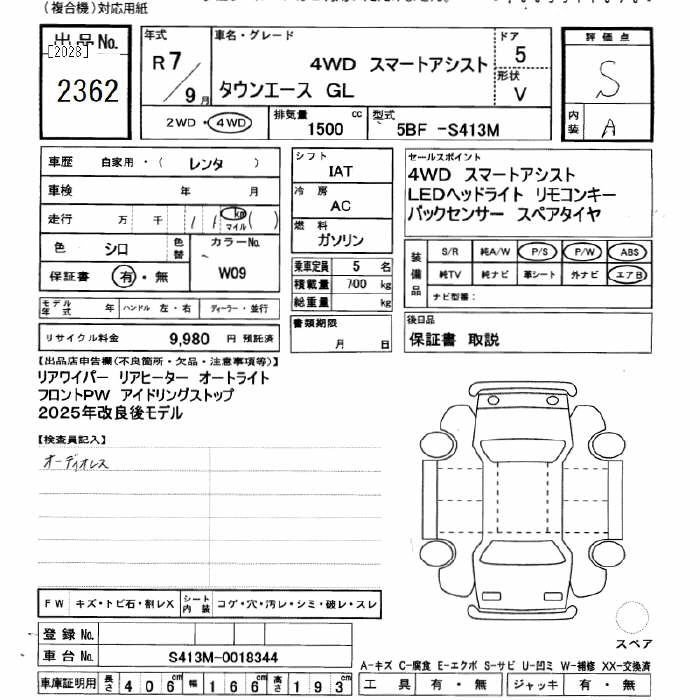 (複合機)対応用紙
出品No.
[2028]
2362
年式
R7/9月
車名・グレード
4WD スマートアシスト
タウンエース GL
ドア
5
形状
V
評価点
S
内装
A
2WD・4WD
排気量
1500 cc
型式
5BF -S413M
車歴 自家用・( レンタ )
車検 年 月
走行 万 千 / / km マイル ( )
色 シロ 色替
カラーNo.
W09
保証書 有・無
モデル年式 年 ハンドル 左・右 ディーラー・並行
リサイクル料金 9,980 円 預託済
シフト
IAT
冷房
AC
燃料
ガソリン
乗車定員 5 名
積載量 700 kg
総重量 kg
書類期限
月 日
セールスポイント
4WD スマートアシスト
LEDヘッドライト リモコンキー
バックセンサー スペアタイヤ
装備品
S/R 純A/W P/S P/W ABS
純TV 純ナビ 革シート 外ナビ エアB
ナビ型番:
後日品
保証書 取説
【出品店申告欄(不良箇所・欠品・注意事項等)】
リアワイパー リアヒーター オートライト
フロントPW アイドリングストップ
2025年改良後モデル
【検査員記入】
オーディオレス
FW キズ・トビ石・割レX シート内装 コゲ・穴・汚レ・シミ・破レ・スレ
登録No.
車台No. S413M-0018344
車庫証明用 長さ 406cm 幅 166cm 高さ 193cm
スペア
A-キズ C-腐食 E-エクボ S-サビ U-凹ミ W-補修 XX-交換済
工具 有・無 ジャッキ 有・無